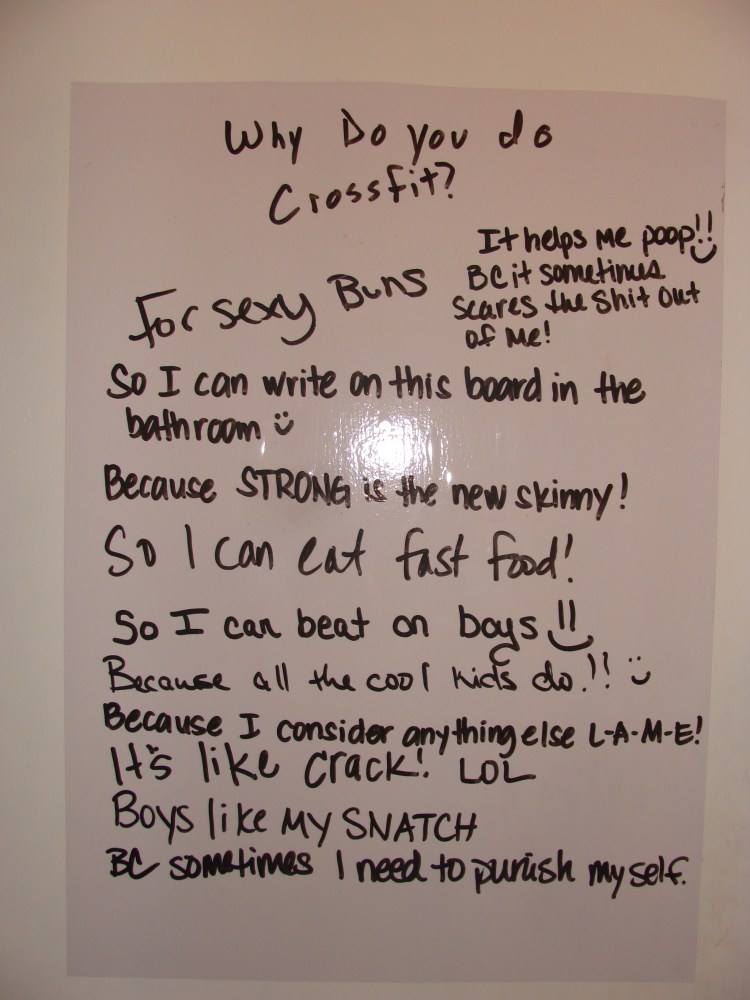 Why Do you do
Crossfit?
It helps me poop!!
For sexy Buns
BC it sometimes
scares the shit out
of me!
So I can write on this board in the
bathroom :)
Because STRONG is the new skinny!
So I can eat fast food!
So I can beat on boys !!
Because all the cool kids do!! :)
Because I consider anything else L-A-M-E!
It's like crack! LOL
Boys like MY SNATCH
BC sometimes I need to punish myself.